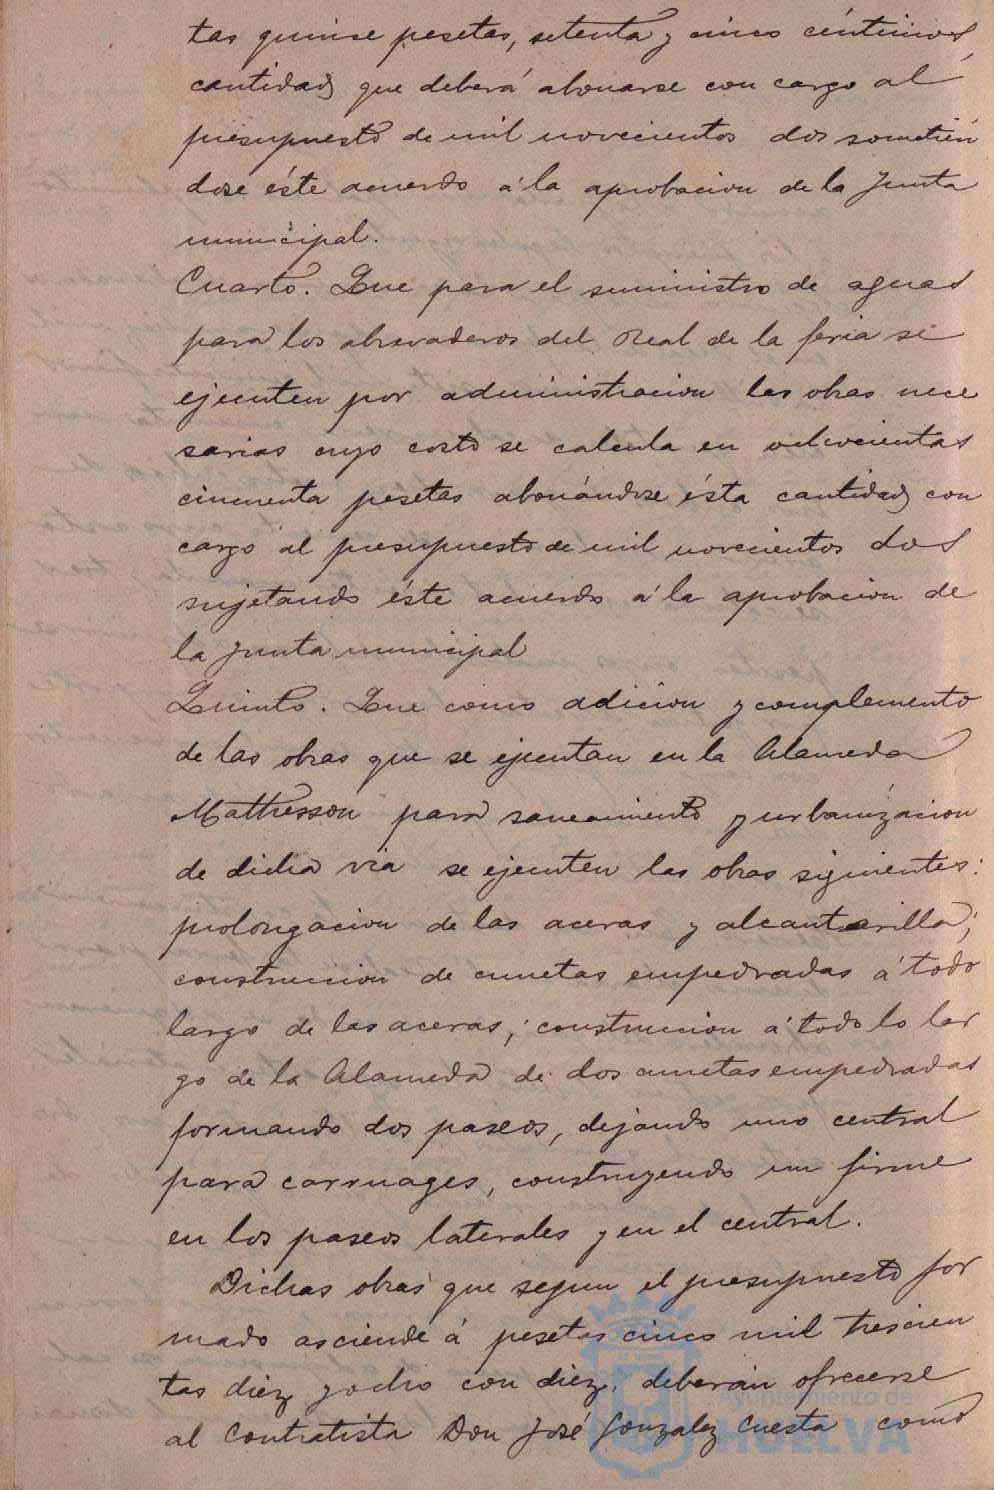 tas quinse pesetas, setenta y cinco céntimos,
cantidad que deberá abonarse con cargo al
presupuesto de mil novecientos dos sometién
dose éste acuerdo á la aprobacion de la Junta
municipal.
Cuarto. Que para el suministro de aguas
para los abrevaderos del Real de la feria se
ejecuten por administracion las obras nece
sarias cuyo costo se calcula en ochocientas
cincuenta pesetas abonándose ésta cantidad con
cargo al presupuesto de mil novecientos dos
sujetando éste acuerdo á la aprobacion de
la Junta municipal
Quinto. Que como adicion y complemento
de las obras que se ejecutan en la Alameda
Mathesson para saneamiento y urbanizacion
de dicha via se ejecuten las obras siguientes:
prolongacion de las aceras y alcantarilla;
construccion de cunetas empedradas á todo
largo de las aceras; construccion á todo lo lar
go de la Alameda de dos cunetas empedradas
formando dos paseos, dejando uno central
para carruages, construyendo un firme
en los paseos laterales y en el central.
Dichas obras que segun el presupuesto for
mado asciende á pesetas cinco mil trescien
tas diez y ocho con diez, deberán ofrecerse
al Contratista Don José Gonzalez Cuesta como
Ayuntamiento de
HUELVA